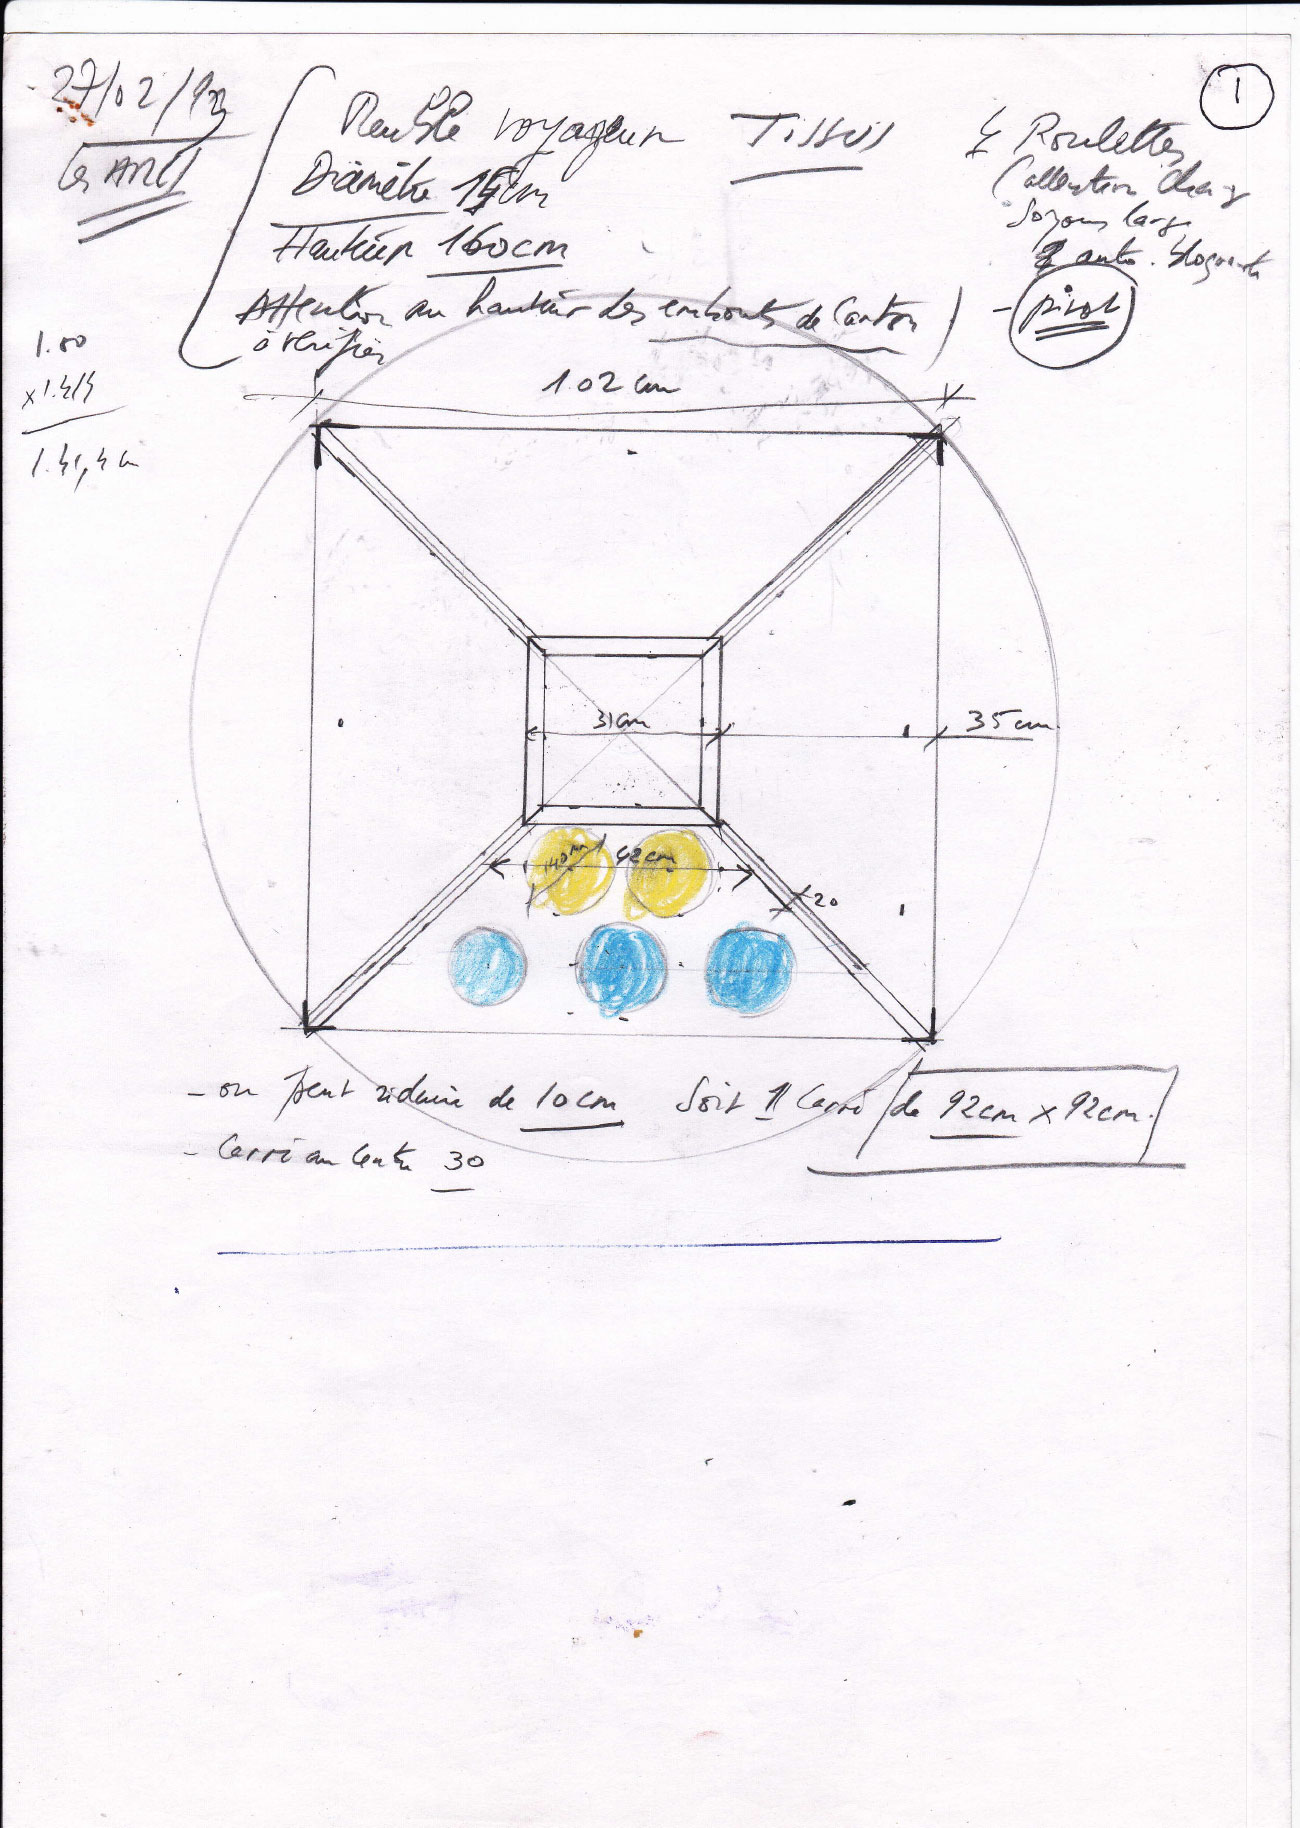 27/02/93
Les ARCS
1
Meuble voyageur TISSUS
Diamètre cm
Hauteur 160cm
Attention au hauteur des embouts de Carton
à vérifier
4 Roulettes
(attention charg
soyons large
2 auto. bloquante
- pivot
1.00
x 1.414
1.41,4 cm
1.02 cm
31cm
35 cm
140mm
42cm
20
- on peut réduire de 10cm Soit 1 Carré de 92cm x 92cm.
- Carré au Centre 30